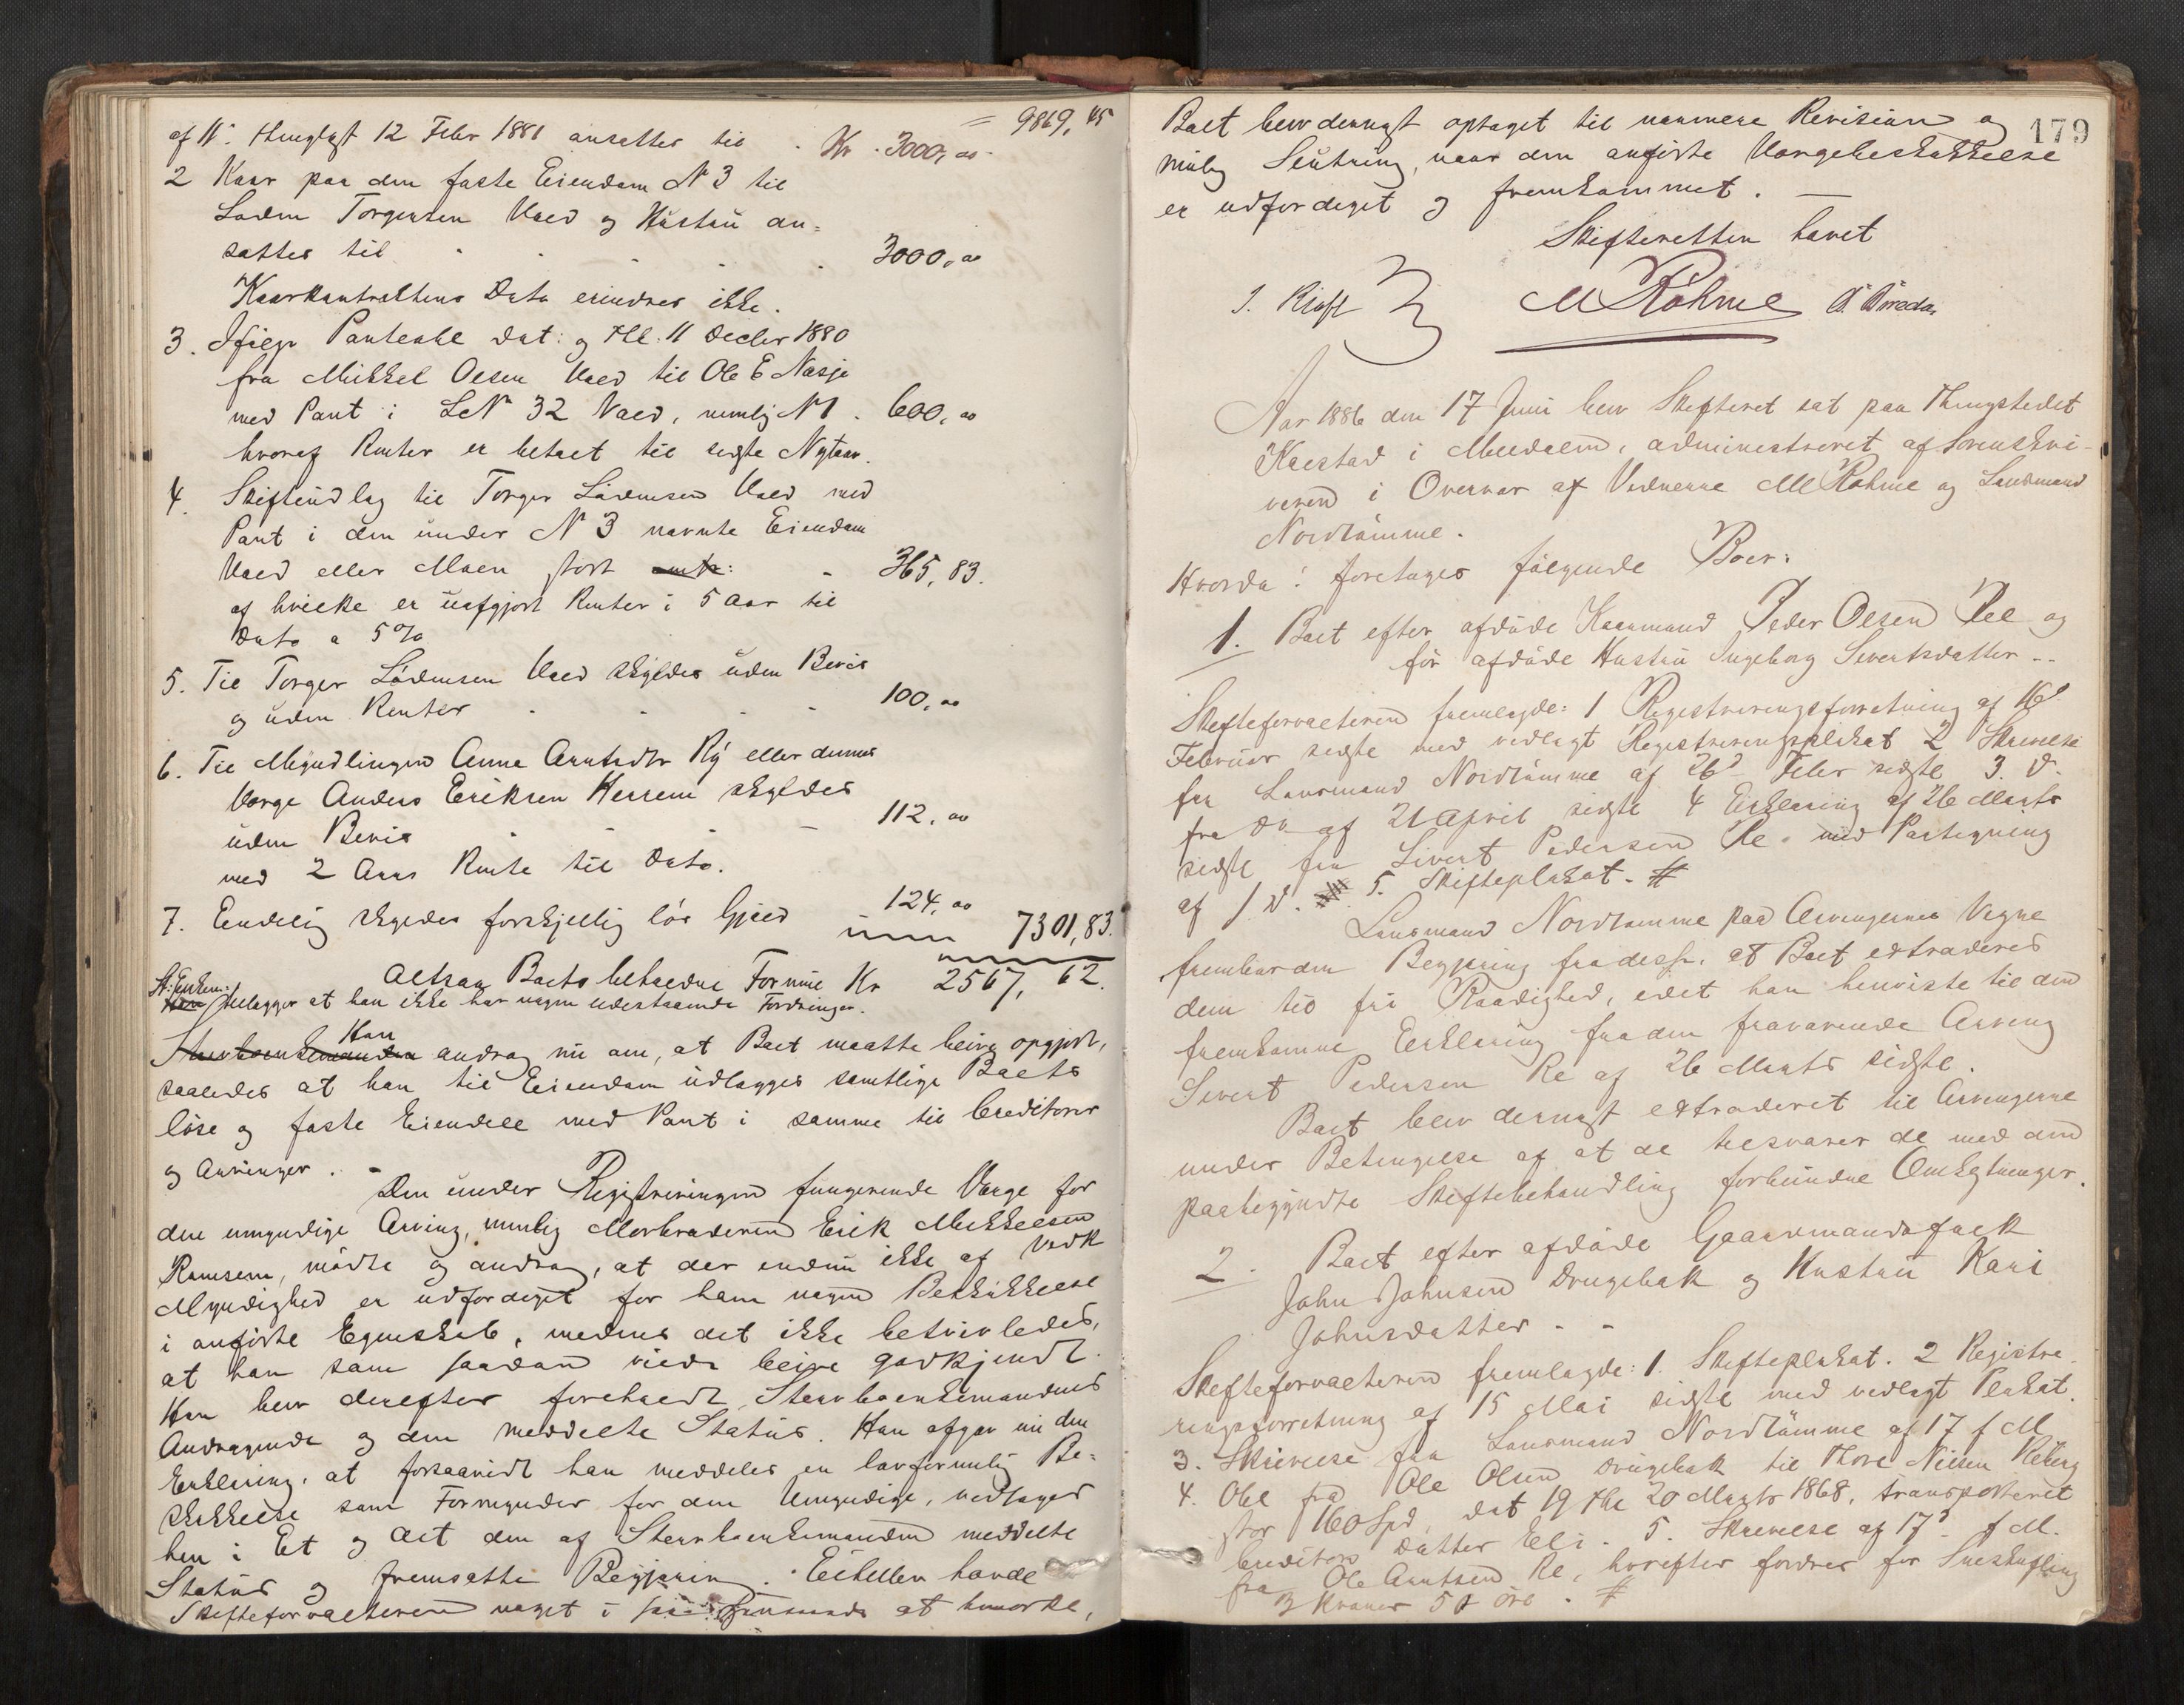 = 9869,45
af N: thinglyst 12 Febr 1881 ansattes til . Kr. 3000,00
2 Kaar paa den faste Eiendom N 3 til
Torgersen Vold og Hustru an=
sattes til . . . . 3000,00
Kaarkontraktens Dato erindres ikke.
3. Ifølge dat: og thl. 11 Decbr 1880
fra Mikkel Olsen Vold til Ole E Nasje
med Pant i LN 32 Vold, nemlig N 1 . 600,00
hvoraf Renter er betalt til sidste Nytaar.
4. til Torger Vold med
Pant i den under N 3 nævnte Eiendom
Vold eller Moen stort . 365,83.
af hvilke er uafgjort Renter i 5 Aar til
Dato a 5%
5. Til Torger Vold skyldes uden Bevis
og uden Renter . . . . 100,00
6. Til Myndlingen Anne Arntsdtr Ry eller dennes
Værge Anders Eriksen Herrem skyldes
uden Bevis . . . 112,00
med 2 Aars Rente til Dato.
7. Endelig skyldes forskjellig løs Gjæld 124,00
7301,83.
Altsaa Boets beholdne Formue Kr 2567,62.
St: Enkem: tillægger at han ikke har nogen udestaaende Fordringer.
Han
Stervboenkemanden androg nu om, at Boet maatte blive opgjort,
saaledes at han til Eiendom udlægges samtlige Boets
løse og faste Eiendele med Pant i samme til Creditorer
og Arvinger. -
Den under Registreringen fungerende Værge for
den umyndige Arving, nemlig Morbroderen Erik Mikkelsen
Ramsem, mødte og androg, at der endnu ikke af Vedk
Myndighed er udfærdiget for ham nogen Beskikkelse
i anførte Egenskab, medens det ikke betvivledes,
at han som saadan vilde blive godkjendt.
Han blev derefter foreholdt Stervboenkemandens
Andragende og den meddelte Status. Han afgav nu den
Erklæring, at forsaavidt han meddeles en lovformelig Be=
skikkelse som Formynder for den Umyndige, vedtages
hen i Et og Alt den af Stervboenkemanden meddelte
Status og fremsatte Begjæring. Ei heller havde
Skifteforvalteren noget i saa Henseende at bemærke,
179
Boet blev dernæst optaget til nærmere Revision og
mulig Slutning, naar den anførte Værgebeskikkelse
er udfærdiget og fremkommet. —
Skifteretten hævet
J. Kraft M Rohme
Aar 1886 den 17 Juni blev Skifteret sat paa Thingstedet
i Meldalen, administreret af Sorenskri-
veren i Overvær af Vidnerne M Rohme og Lensmand
Nordtømme.
Hvorda: foretages følgende Boer:
1. Boet efter afdøde Kaarmand Peder Olsen Ree og
før afdøde Hustru Ingeborg Sivertsdatter --
Skifteforvalteren fremlagde: 1 Registreringsforretning af 16d
Februar sidste med vedlagt Registreringsplakat 2 Skrivelse
fra Lensmand Nordtømme af 26d Febr sidste 3. D.
fra Do af 21 April sidste 4 Erklæring af 26 Marts
sidste fra Sivert Pedersen Re med Paategning
af f. D. 5. Skifteplakat. #
Lensmand Nordtømme paa Arvingernes Vegne
frembar den Begjæring fra disse, at Boet extraderes
dem til fri Raadighed, idet han henviste til den
fremkomne Erklæring fra den fraværende Arving
Sivert Pedersen Re af 26 Marts sidste.
Boet blev dernæst extraderet til Arvingerne
under Betingelse af at de tilsvarer de med den
paabegyndte Skiftebehandling forbundne Omkostninger.
2. Boet efter afdøde Gaardmandsfolk
John Johnsen Drugebak og Hustru Kari
Johnsdatter - -
Skifteforvalteren fremlagde: 1. Skifteplakat. 2 Registre-
ringsforretning af 15 Mai sidste med vedlagt Plakat.
3. Skrivelse fra Lensmand Nordtømme af 17 f M
4. Obl fra Ole Olsen Drugebak til Thore Nilsen
stor 160 Spd, dat 19 thl 20 Marts 1868, transporteret
Creditors Datter Eli. 5. Skrivelse af 17d f M.
fra Ole Arntsen Re, hvorefter fordres for
3 Kroner 50 øre . #